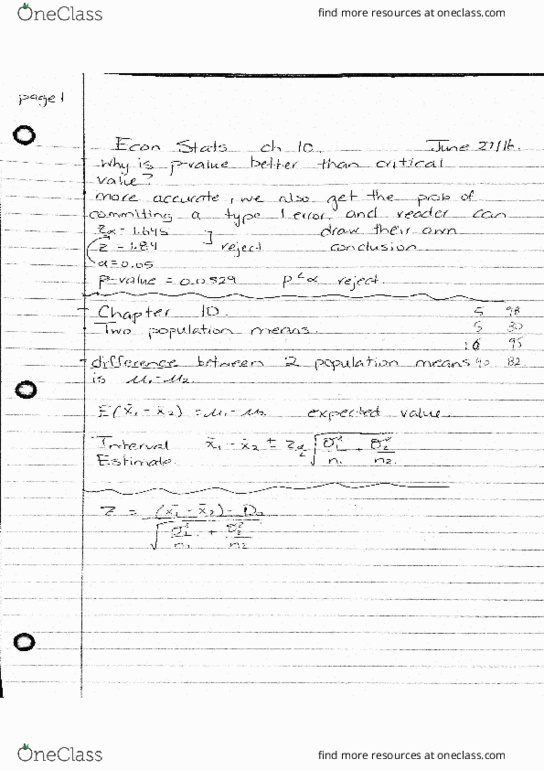 OneClass
find more resources at oneclass.com
page 1
Econ Stats ch 10. June 27/16.
why is p-value better than critical
value?
more accurate, we also get the prob of
committing a type 1 error, and reader can
Zα = 1.645 draw their own
Z = 1.84 ] reject conclusion
α = 0.05
p-value = 0.0329 p<α reject.
Chapter 10. 5 98
Two population means. 5 30
16 95
difference between 2 population means 90 82
is μ1 - μ2.
E(x̄1 - x̄2) = μ1 - μ2 expected value
Interval x̄1 - x̄2 ± Zα/2 √(σ1²/n1 + σ2²/n2)
Estimate.
Z = ((x̄1 - x̄2) - D0) / √(σ1²/n1 + σ2²/n2)
OneClass
find more resources at oneclass.com